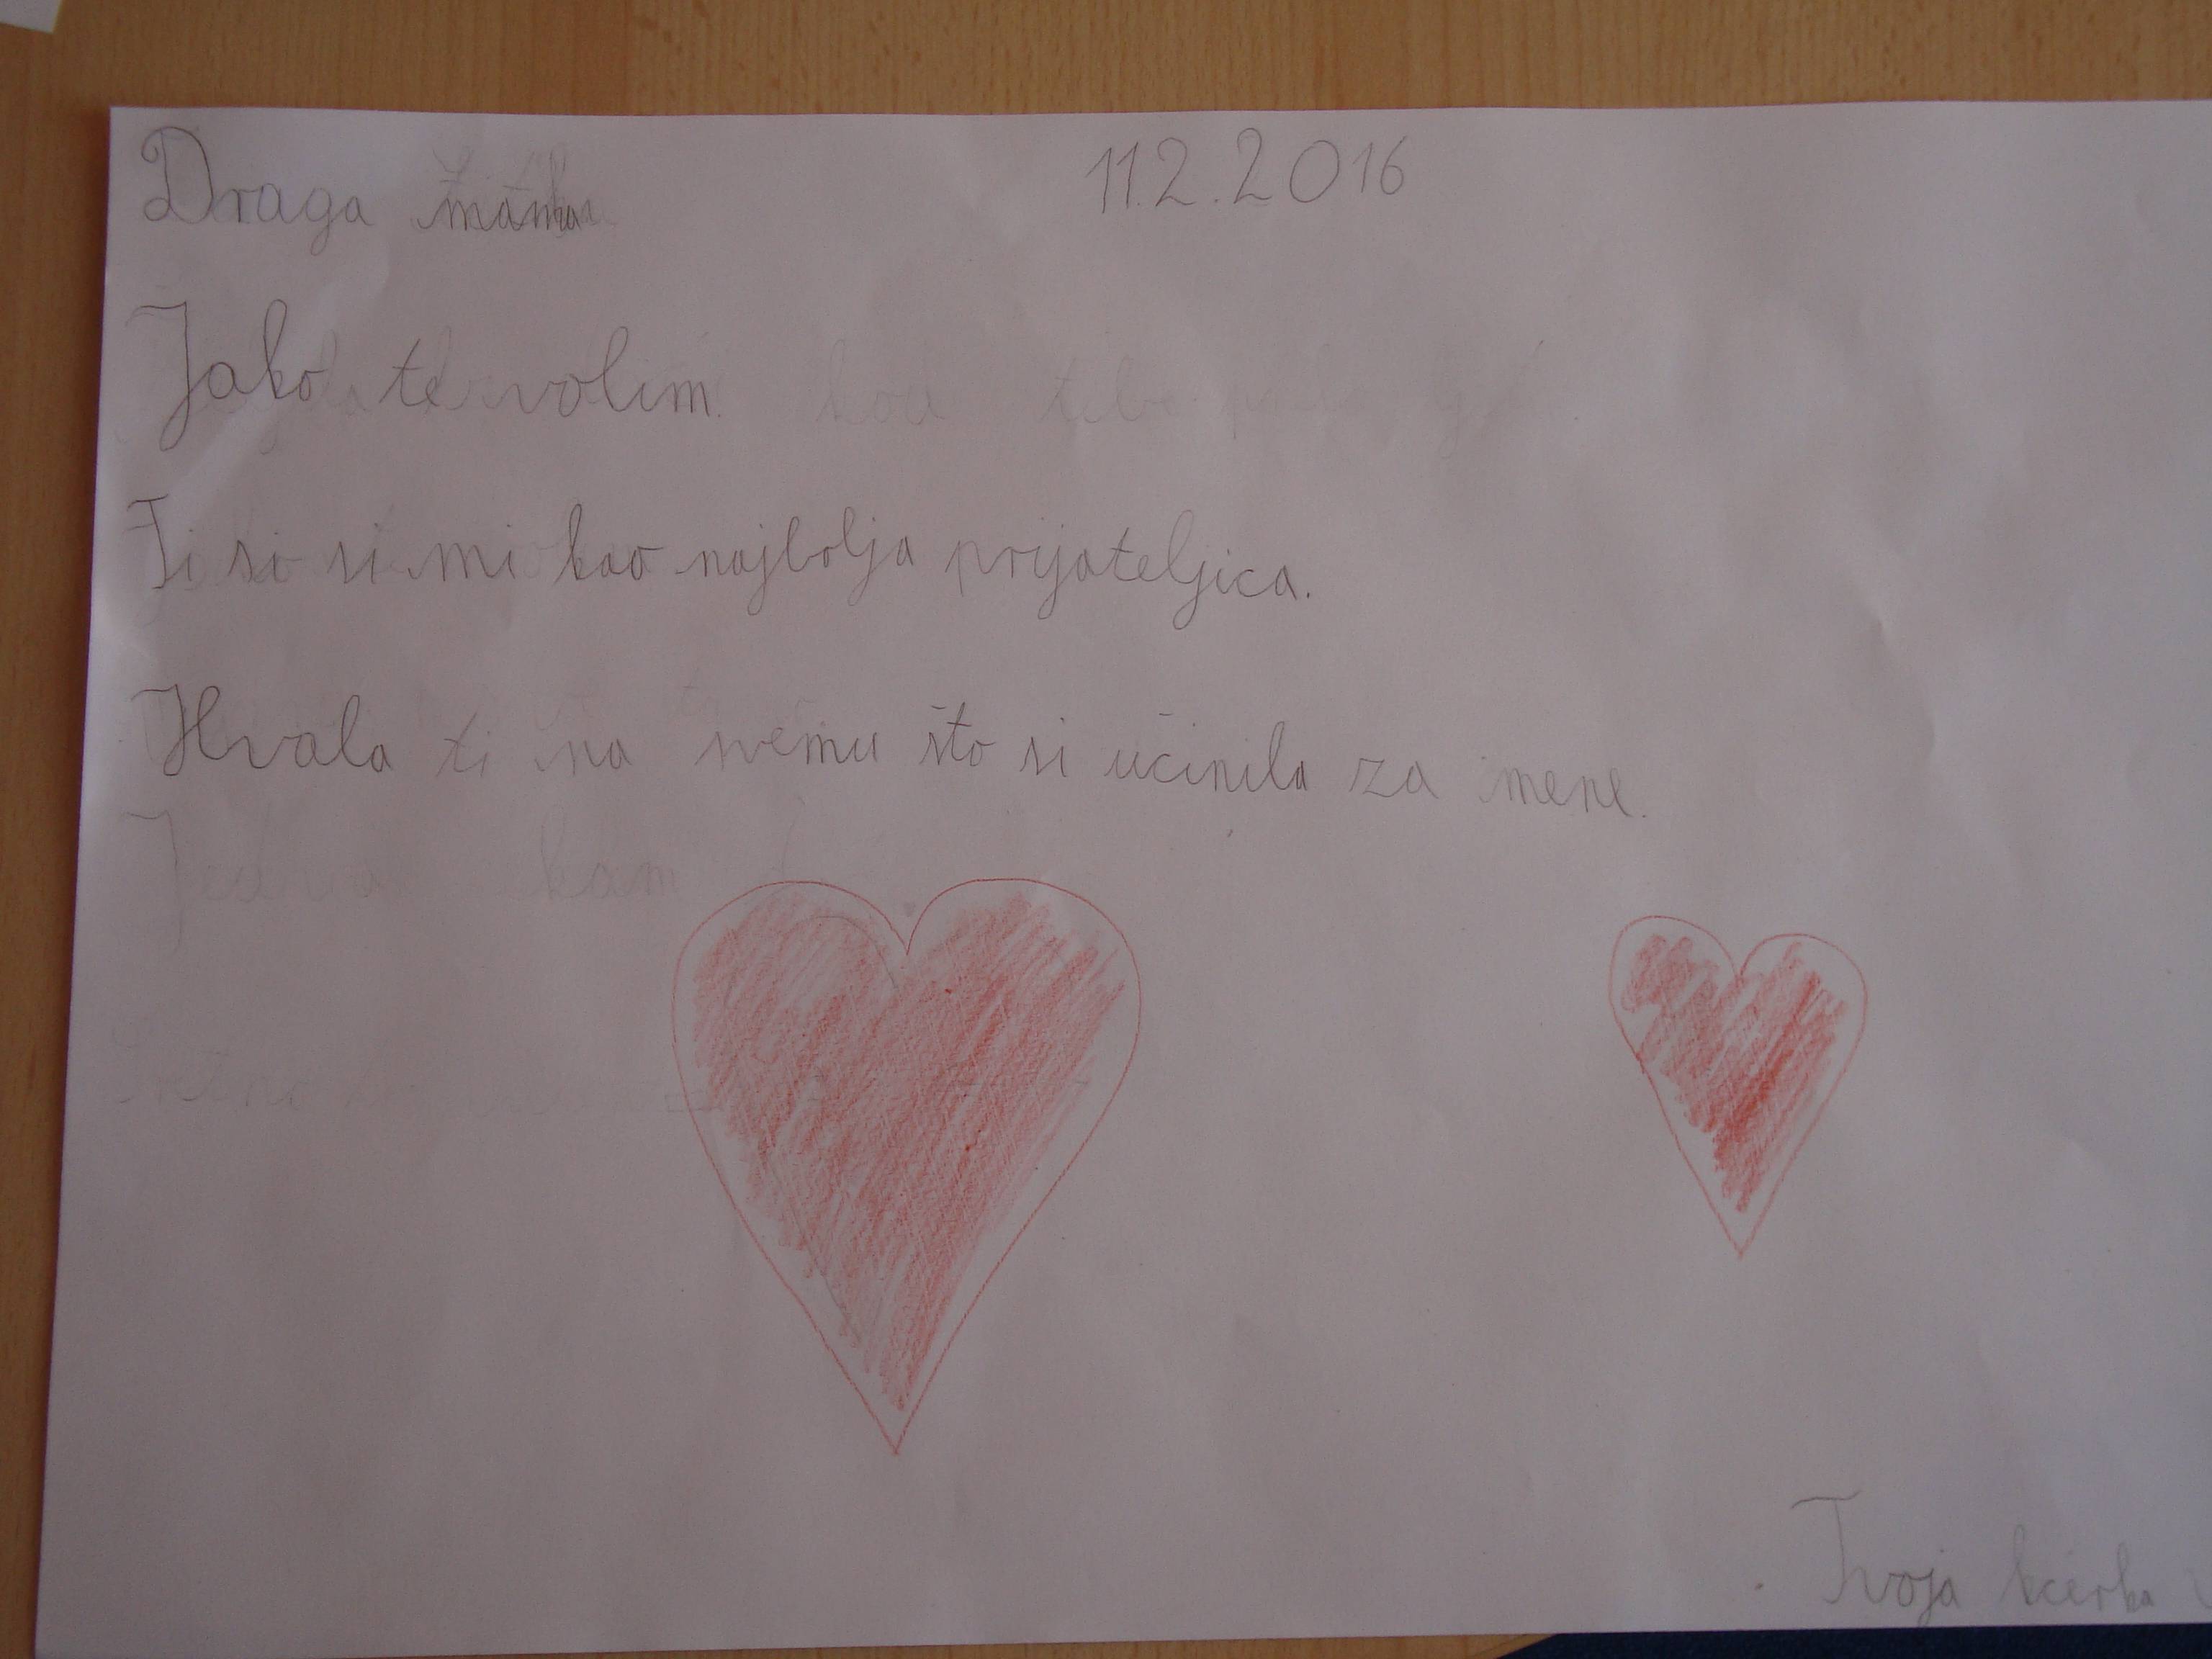 Draga mama 11.2.2016
Jako te volim.
Ti si si mi kao najbolja prijateljica.
Hvala ti na svemu što si učinila za mene.
Tvoja kćerka